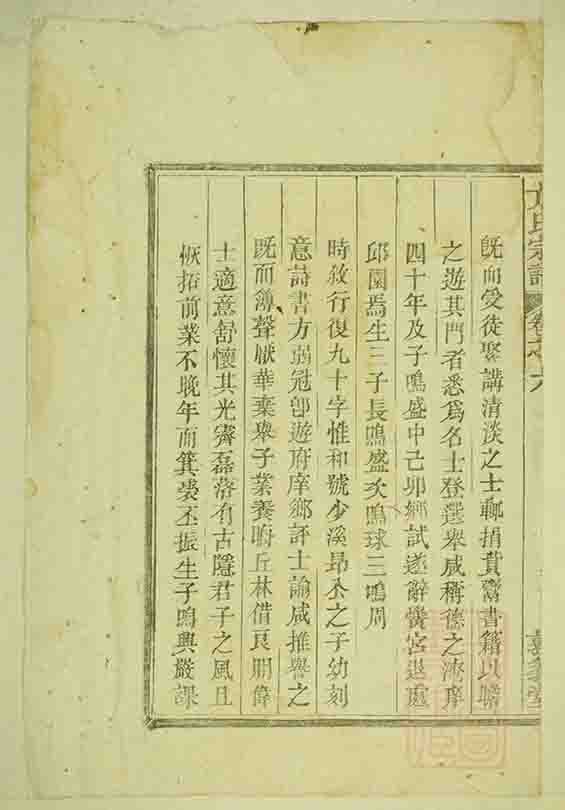 氏宗譜 卷之六
既而受徒聚講清淡之士輙捐貲鬻書籍以贍
之遊其門者悉為名士登選舉咸稱德之淹庠
四十年及子鳴盛中己卯鄉試遂辭黌宮退處
邱園焉生三子長鳴盛次鳴球三鳴周
時敘行復九十字惟和號少溪昂丕之子幼刻
意詩書方弱冠卽遊府庠鄉評士論咸推譽之
既而薄聲厭華棄舉子業養晦丘林借良朋偉
士適意舒懷其光霽磊落有古隱君子之風且
恢拓前業不晚年而箕裘丕振生子鳴興嚴課